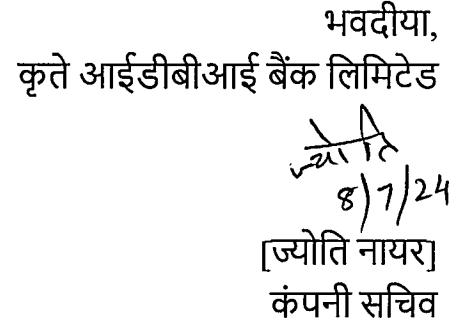 भवदीया,
कृते आईडीबीआई बैंक लिमिटेड
ज्योति
8/7/24
[ज्योति नायर]
कंपनी सचिव